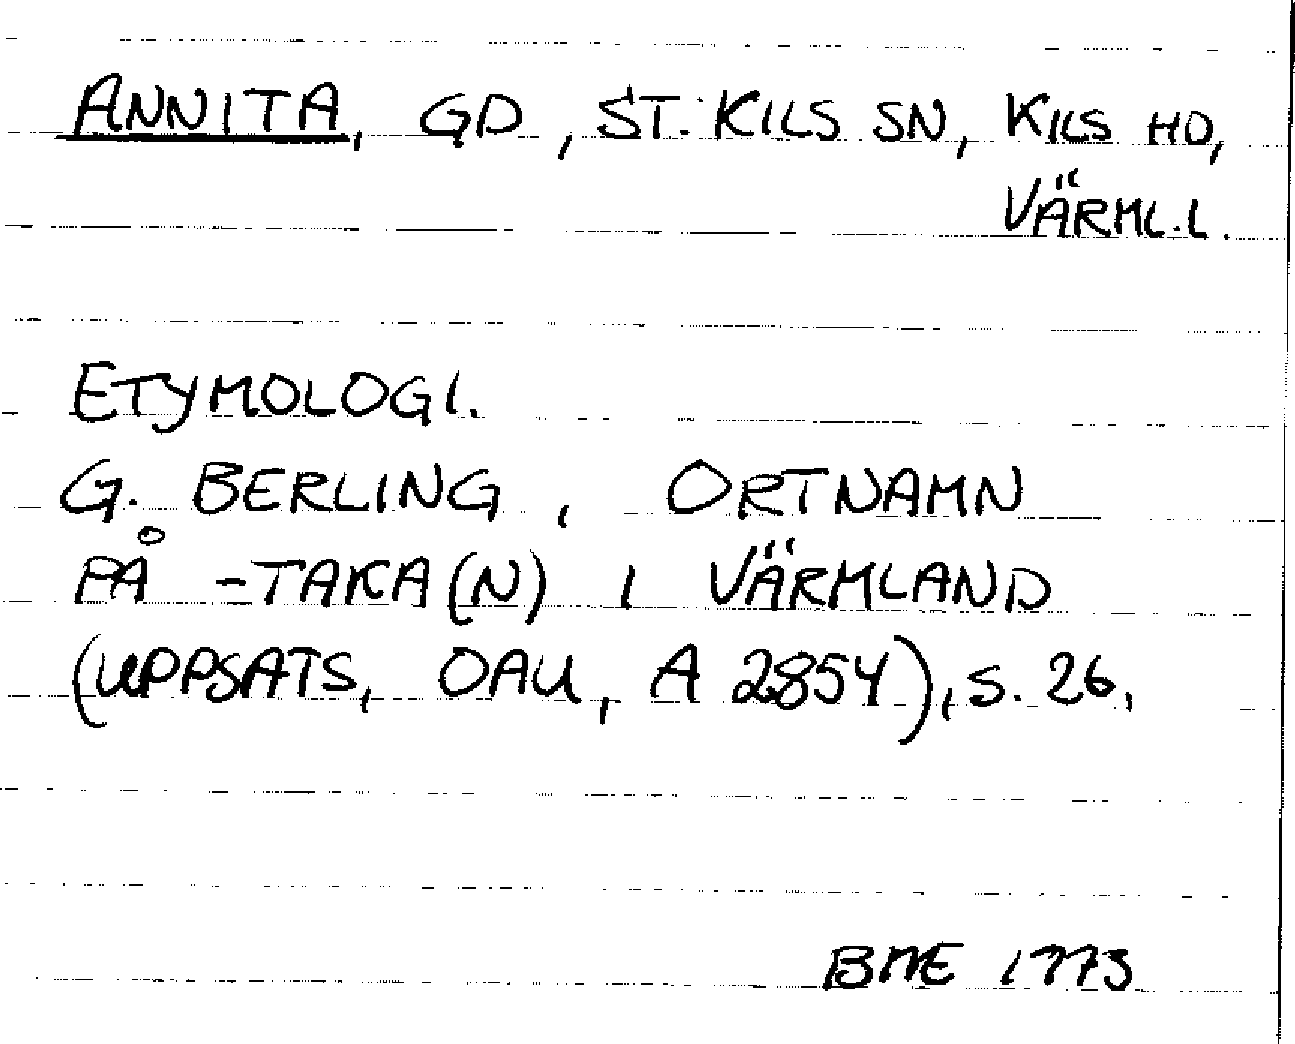 ANNITA, GD, ST. KILS SN, KILS HD,
VÄRML.L.
ETYMOLOGI.
G. BERLING, ORTNAMN
PÅ -TAKA(N) I VÄRMLAND
(UPPSATS, OAU, A 2854), S. 26.
BME 1773